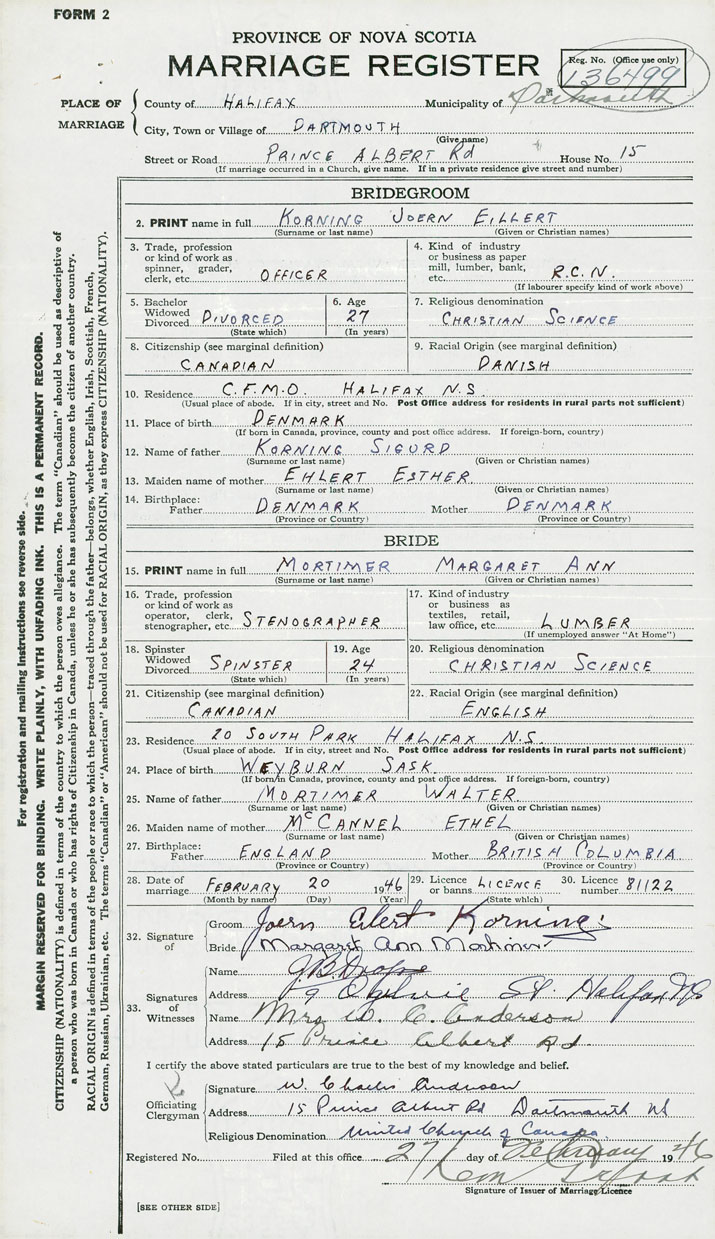 FORM 2
PROVINCE OF NOVA SCOTIA
MARRIAGE REGISTER
Reg. No. (Office use only)
136499
PLACE OF MARRIAGE
County of HALIFAX Municipality of Dartmouth
City, Town or Village of DARTMOUTH
(Give name)
Street or Road PRINCE ALBERT Rd House No. 15
(If marriage occurred in a Church, give name. If in a private residence give street and number)
BRIDEGROOM
2. PRINT name in full KORNING JOERN EILLERT
(Surname or last name) (Given or Christian names)
3. Trade, profession or kind of work as spinner, grader, clerk, etc. OFFICER
4. Kind of industry or business as paper mill, lumber, bank, etc. R.C.N.
(If labourer specify kind of work above)
5. Bachelor Widowed Divorced DIVORCED
(State which)
6. Age 27
(In years)
7. Religious denomination
CHRISTIAN SCIENCE
8. Citizenship (see marginal definition)
CANADIAN
9. Racial Origin (see marginal definition)
DANISH
10. Residence C.F.M.O. HALIFAX N.S.
(Usual place of abode. If in city, street and No. Post Office address for residents in rural parts not sufficient)
11. Place of birth DENMARK
(If born in Canada, province, county and post office address. If foreign-born, country)
12. Name of father KORNING SIGURD
(Surname or last name) (Given or Christian names)
13. Maiden name of mother EHLERT ESTHER
(Surname or last name) (Given or Christian names)
14. Birthplace: Father DENMARK Mother DENMARK
(Province or Country) (Province or Country)
BRIDE
15. PRINT name in full MORTIMER MARGARET ANN
(Surname or last name) (Given or Christian names)
16. Trade, profession or kind of work as operator, clerk, stenographer, etc. STENOGRAPHER
17. Kind of industry or business as textiles, retail, law office, etc. LUMBER
(If unemployed answer "At Home")
18. Spinster Widowed Divorced SPINSTER
(State which)
19. Age 24
(In years)
20. Religious denomination
CHRISTIAN SCIENCE
21. Citizenship (see marginal definition)
CANADIAN
22. Racial Origin (see marginal definition)
ENGLISH
23. Residence 20 SOUTH PARK HALIFAX N.S.
(Usual place of abode. If in city, street and No. Post Office address for residents in rural parts not sufficient)
24. Place of birth WEYBURN SASK.
(If born in Canada, province, county and post office address. If foreign-born, country)
25. Name of father MORTIMER WALTER
(Surname or last name) (Given or Christian names)
26. Maiden name of mother McCANNEL ETHEL
(Surname or last name) (Given or Christian names)
27. Birthplace: Father ENGLAND Mother BRITISH COLUMBIA
(Province or Country) (Province or Country)
28. Date of marriage FEBRUARY 20 1946
(Month by name) (Day) (Year)
29. Licence or banns LICENCE
(State which)
30. Licence number 81122
32. Signature of
Groom Joern Eilert Korning
Bride Margaret Ann Mortimer
33. Signatures of Witnesses
Name J.B. Drope
Address 19 Ogilvie St. Halifax NS
Name Mrs W. C. Anderson
Address 15 Prince Albert Rd.
I certify the above stated particulars are true to the best of my knowledge and belief.
Officiating Clergyman
Signature W. Charles Anderson
Address 15 Prince Albert Rd Dartmouth NS
Religious Denomination United Church of Canada
Registered No. Filed at this office 27 day of February 1946
Signature of Issuer of Marriage Licence
[SEE OTHER SIDE]
For registration and mailing instructions see reverse side.
MARGIN RESERVED FOR BINDING. WRITE PLAINLY, WITH UNFADING INK. THIS IS A PERMANENT RECORD.
CITIZENSHIP (NATIONALITY) is defined in terms of the country to which the person owes allegiance. The term "Canadian" should be used as descriptive of
a person who was born in Canada or who has rights of Citizenship in Canada, unless he or she has subsequently become the citizen of another country.
RACIAL ORIGIN is defined in terms of the people or race to which the person—traced through the father—belongs, whether English, Irish, Scottish, French,
German, Russian, Ukrainian, etc. The terms "Canadian" or "American" should not be used for RACIAL ORIGIN, as they express CITIZENSHIP (NATIONALITY).